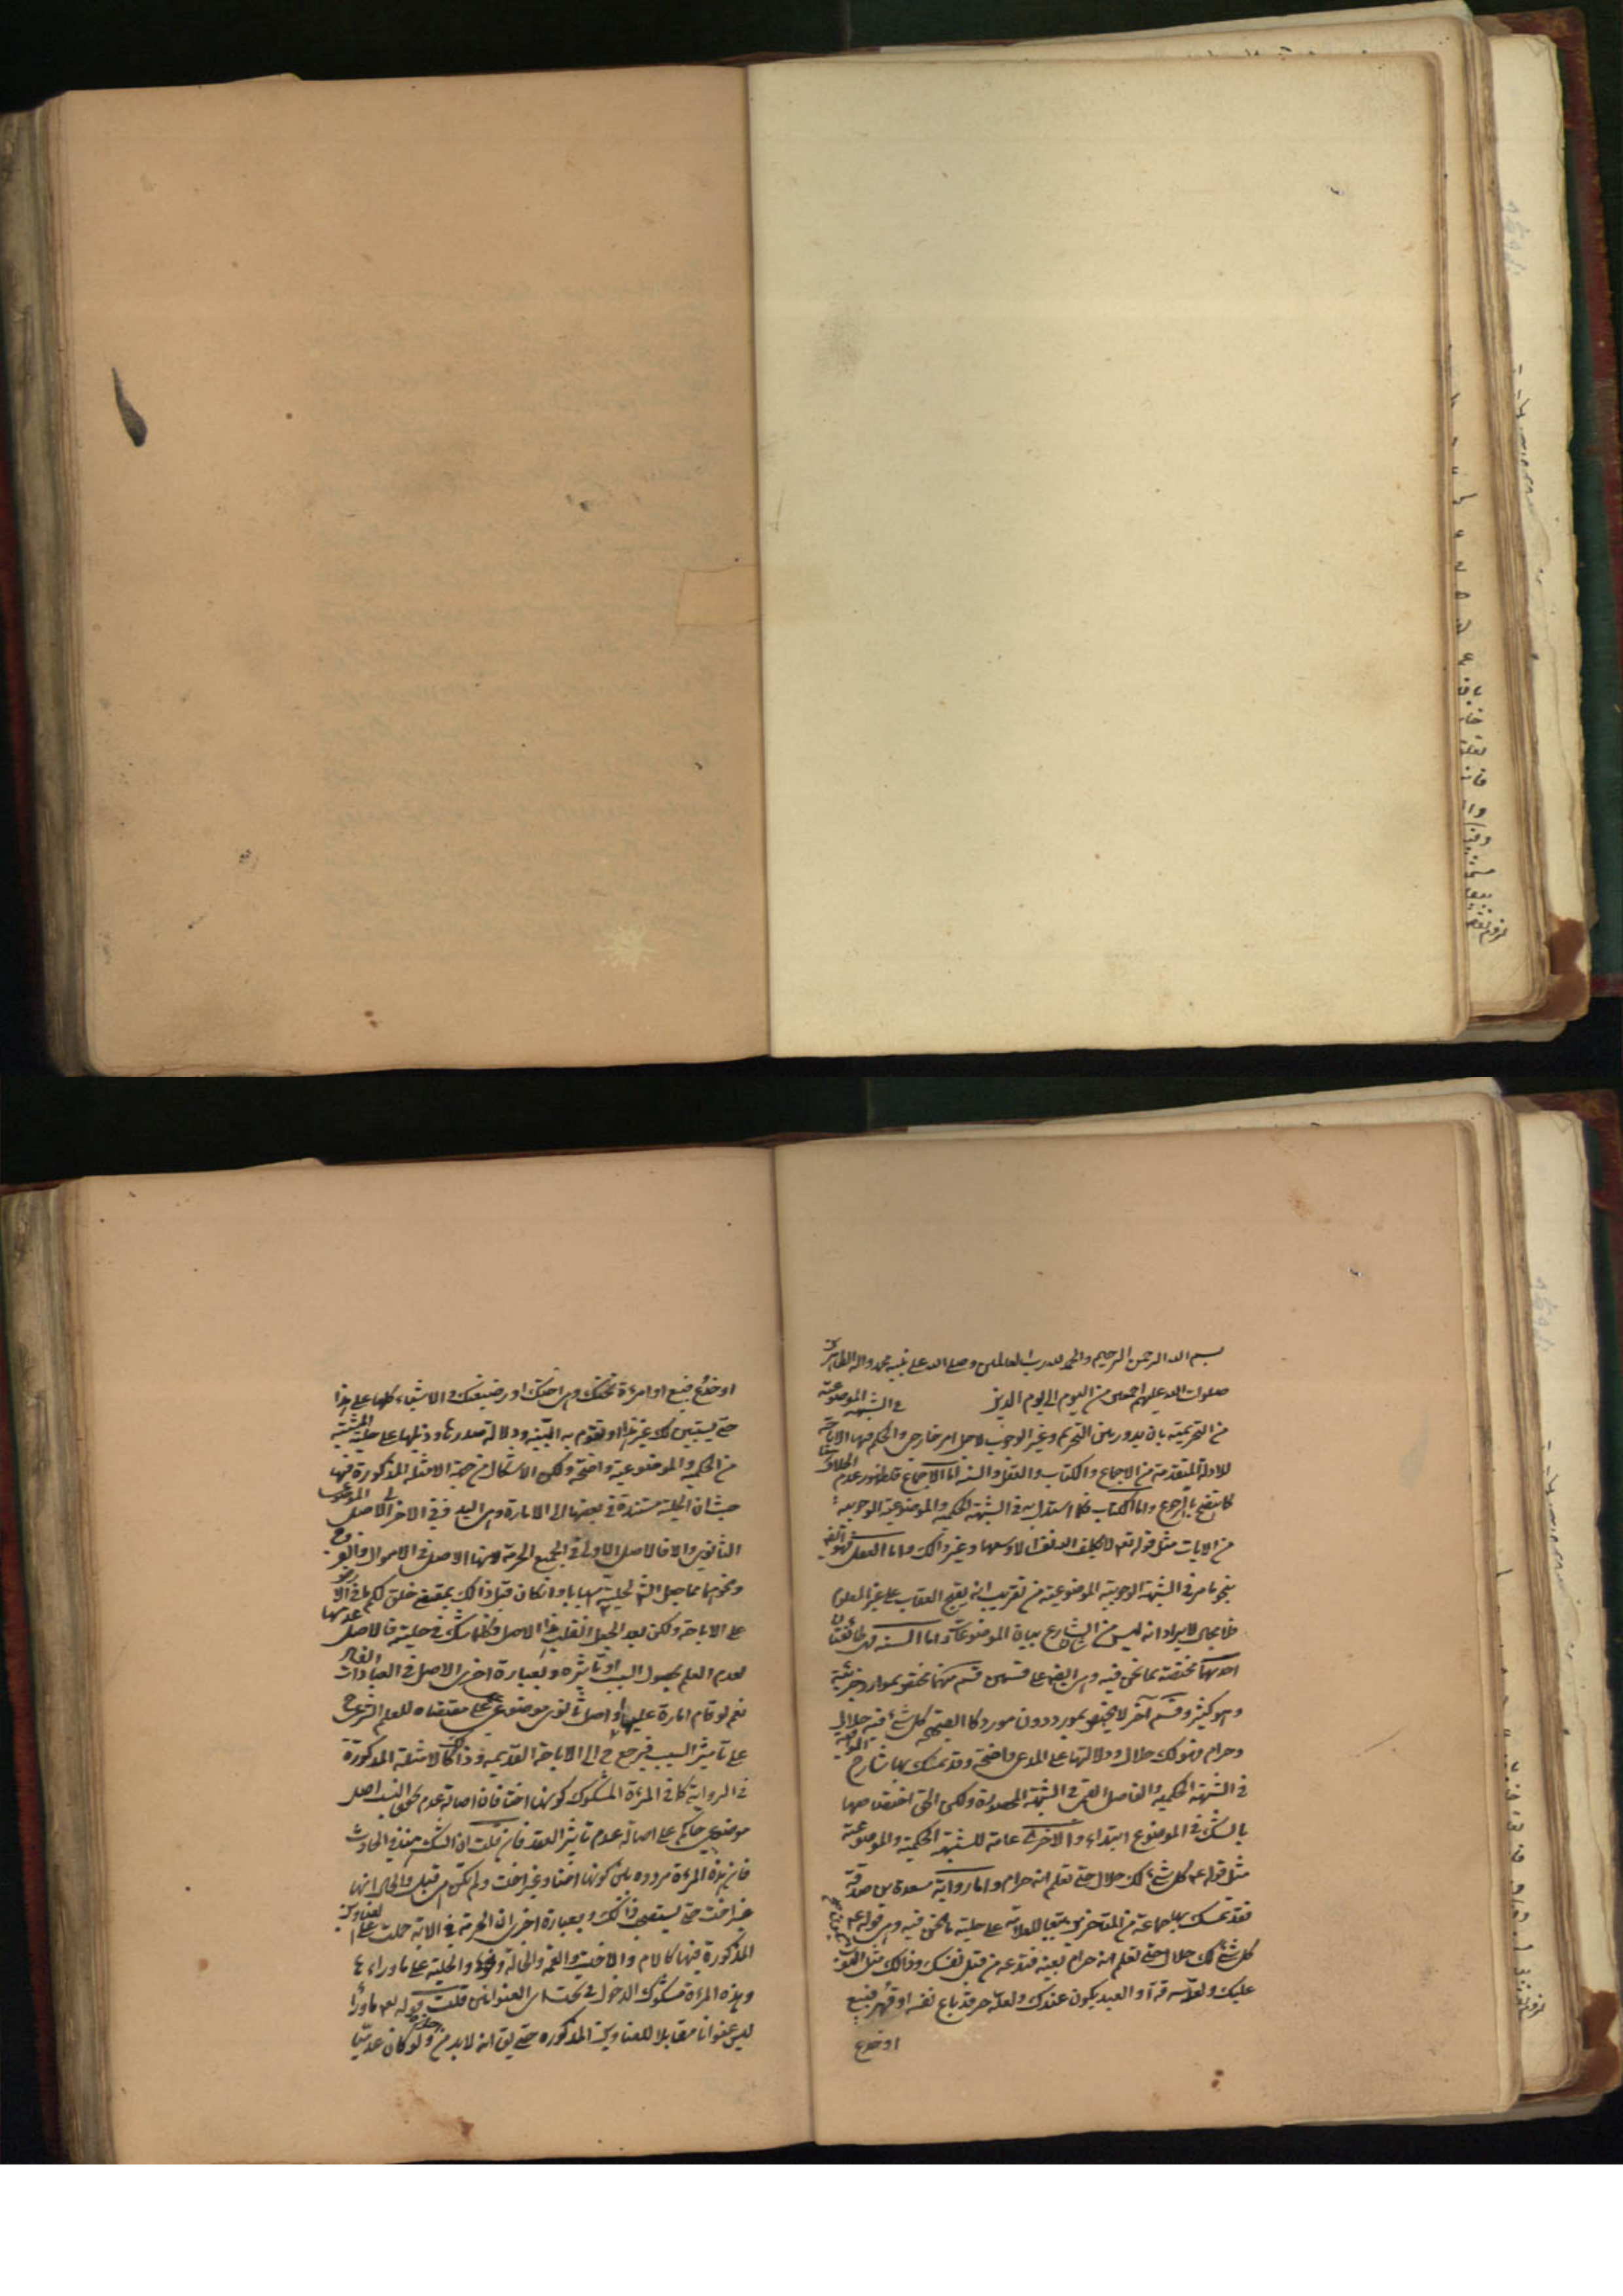 بسم الله الرحمن الرحیم والحمد لله رب العالمین وصلی الله علی نبیه محمد واله الطاهرین
صلوات الله علیهم اجمعین من الیوم الی یوم الدین فی الشبهة الموضوعیة
من التحریمیة بان یدور بین التحریم وغیر الوجوب لاجل امر خارجی والحکم فیها الاباحة
للادلة المتقدمة من الاجماع والکتاب والعقل والسنة اما الاجماع فلظهور عدم الخلاف
کما یتضح بالرجوع واما الکتاب فکلما استدل به فی الشبهة الحکمیة والموضوعیة الوجوبیة
من الایات مثل قوله تعه لا یکلف الله نفسا الا وسعها وغیر ذالک واما العقل فهو ایضا
بنحو ما مر فی الشبهة الوجوبیة الموضوعیة من تقریب انه یقبح العقاب علی غیر المعلوم
فلا مجال لایراد انه لیس من شان الشارع بیان الموضوعات واما السنة فطائفتان
احدیهما مختصة بما نحن فیه وهی ایضا علی قسمین قسم منهما تختص بموارد جزئیة
وهو کثیر وقسم آخر لا یختص بمورد دون مورد کالصحیحة کل شئ فیه حلال
وحرام فهو لک حلال ودلالتها علی المدعی واضحة وقد تمسک بها شارح الوافیة
فی الشبهة الحکمیة والفاضل القمی فی الشبهة المحصورة ولکن الحق اختصاصها
بالشک فی الموضوع ابتداء والاخری عامة للشبهة الحکمیة والموضوعیة
مثل قوله ع کل شئ لک حلال حتی تعلم انه حرام واما روایة مسعدة بن صدقة
فقد تمسک بها جماعة من المتاخرین تبعا للعلامة علی حلیة ما نحن فیه وهی قوله ع
کل شئ لک حلال حتی تعلم انه حرام بعینه فتدعه من قبل نفسک وذالک مثل الثوب
علیک ولعله سرقة او العبد یکون عندک ولعله حر قد باع نفسه او قهر فبیع
او خدع
او خدع فبیع او امرءة تحتک وهی اختک او رضیعتک والاشیاء کلها علی هذا
حتی یستبین لک غیر هذا او تقوم به البینة ودلالة صدرها وذیلها علی حلیة المشتبه
من الحکمیة والموضوعیة واضحة ولکن الاشکال من جهة الامثلة المذکورة فیها
حیث ان الحلیة مستندة فی بعضها الی الامارة وهی الید وفی الاخر الی الاصل الموضوعی
الثانوی والا فالاصل الاولی فی الجمیع الحرمة لاسیما الاصل فی الاموال والفروج
ونحوهما مما جعل الشارع لحلیتها اسبابا وان کان قبل ذالک بمقتضی خلق لکم ما فی الارض
علی الاباحة ولکن بعد الجعل انقلب هذا الاصل فکلما شک فی حلیته فالاصل عدمها
لعدم العلم بحصول السبب او تاثیره وبعبارة اخری الاصل فی العبادات الفساد
نعم لو قام امارة علیها او اصل ثانوی موضوعی عمل علی مقتضاه للعلم الشرعی ح
علی تاثیر السبب فیرجع ح الی الاباحة القدیمة وذالک کالامثلة المذکورة
فی الروایة کما فی المرءة المشکوک کونها اختا فان اصالة عدم تحقق النسب اصل
موضوعی حاکم علی اصالة عدم تاثیر العقد فان قلت ان الشک هنا فی الحادث
فان هذه المرءة مردده بین کونها اختا وغیر اخت ولم تکن من قبل والحال انها
غیر اخت حتی یستصحب ذالک وبعبارة اخری ان الحرمة فی الایة حملت علی العناوین
المذکورة فیها کالام والاخت والعمة والخالة ونحوها والحلیة علی ما وراءها
وهذه المرءة مشکوک الدخول فی تحت ای العنوانین قلت قوله تعه ما وراء
لیس عنوانا مقابلا للعناوین المذکوره حتی یق انه لابد من ولو کان عدمیا